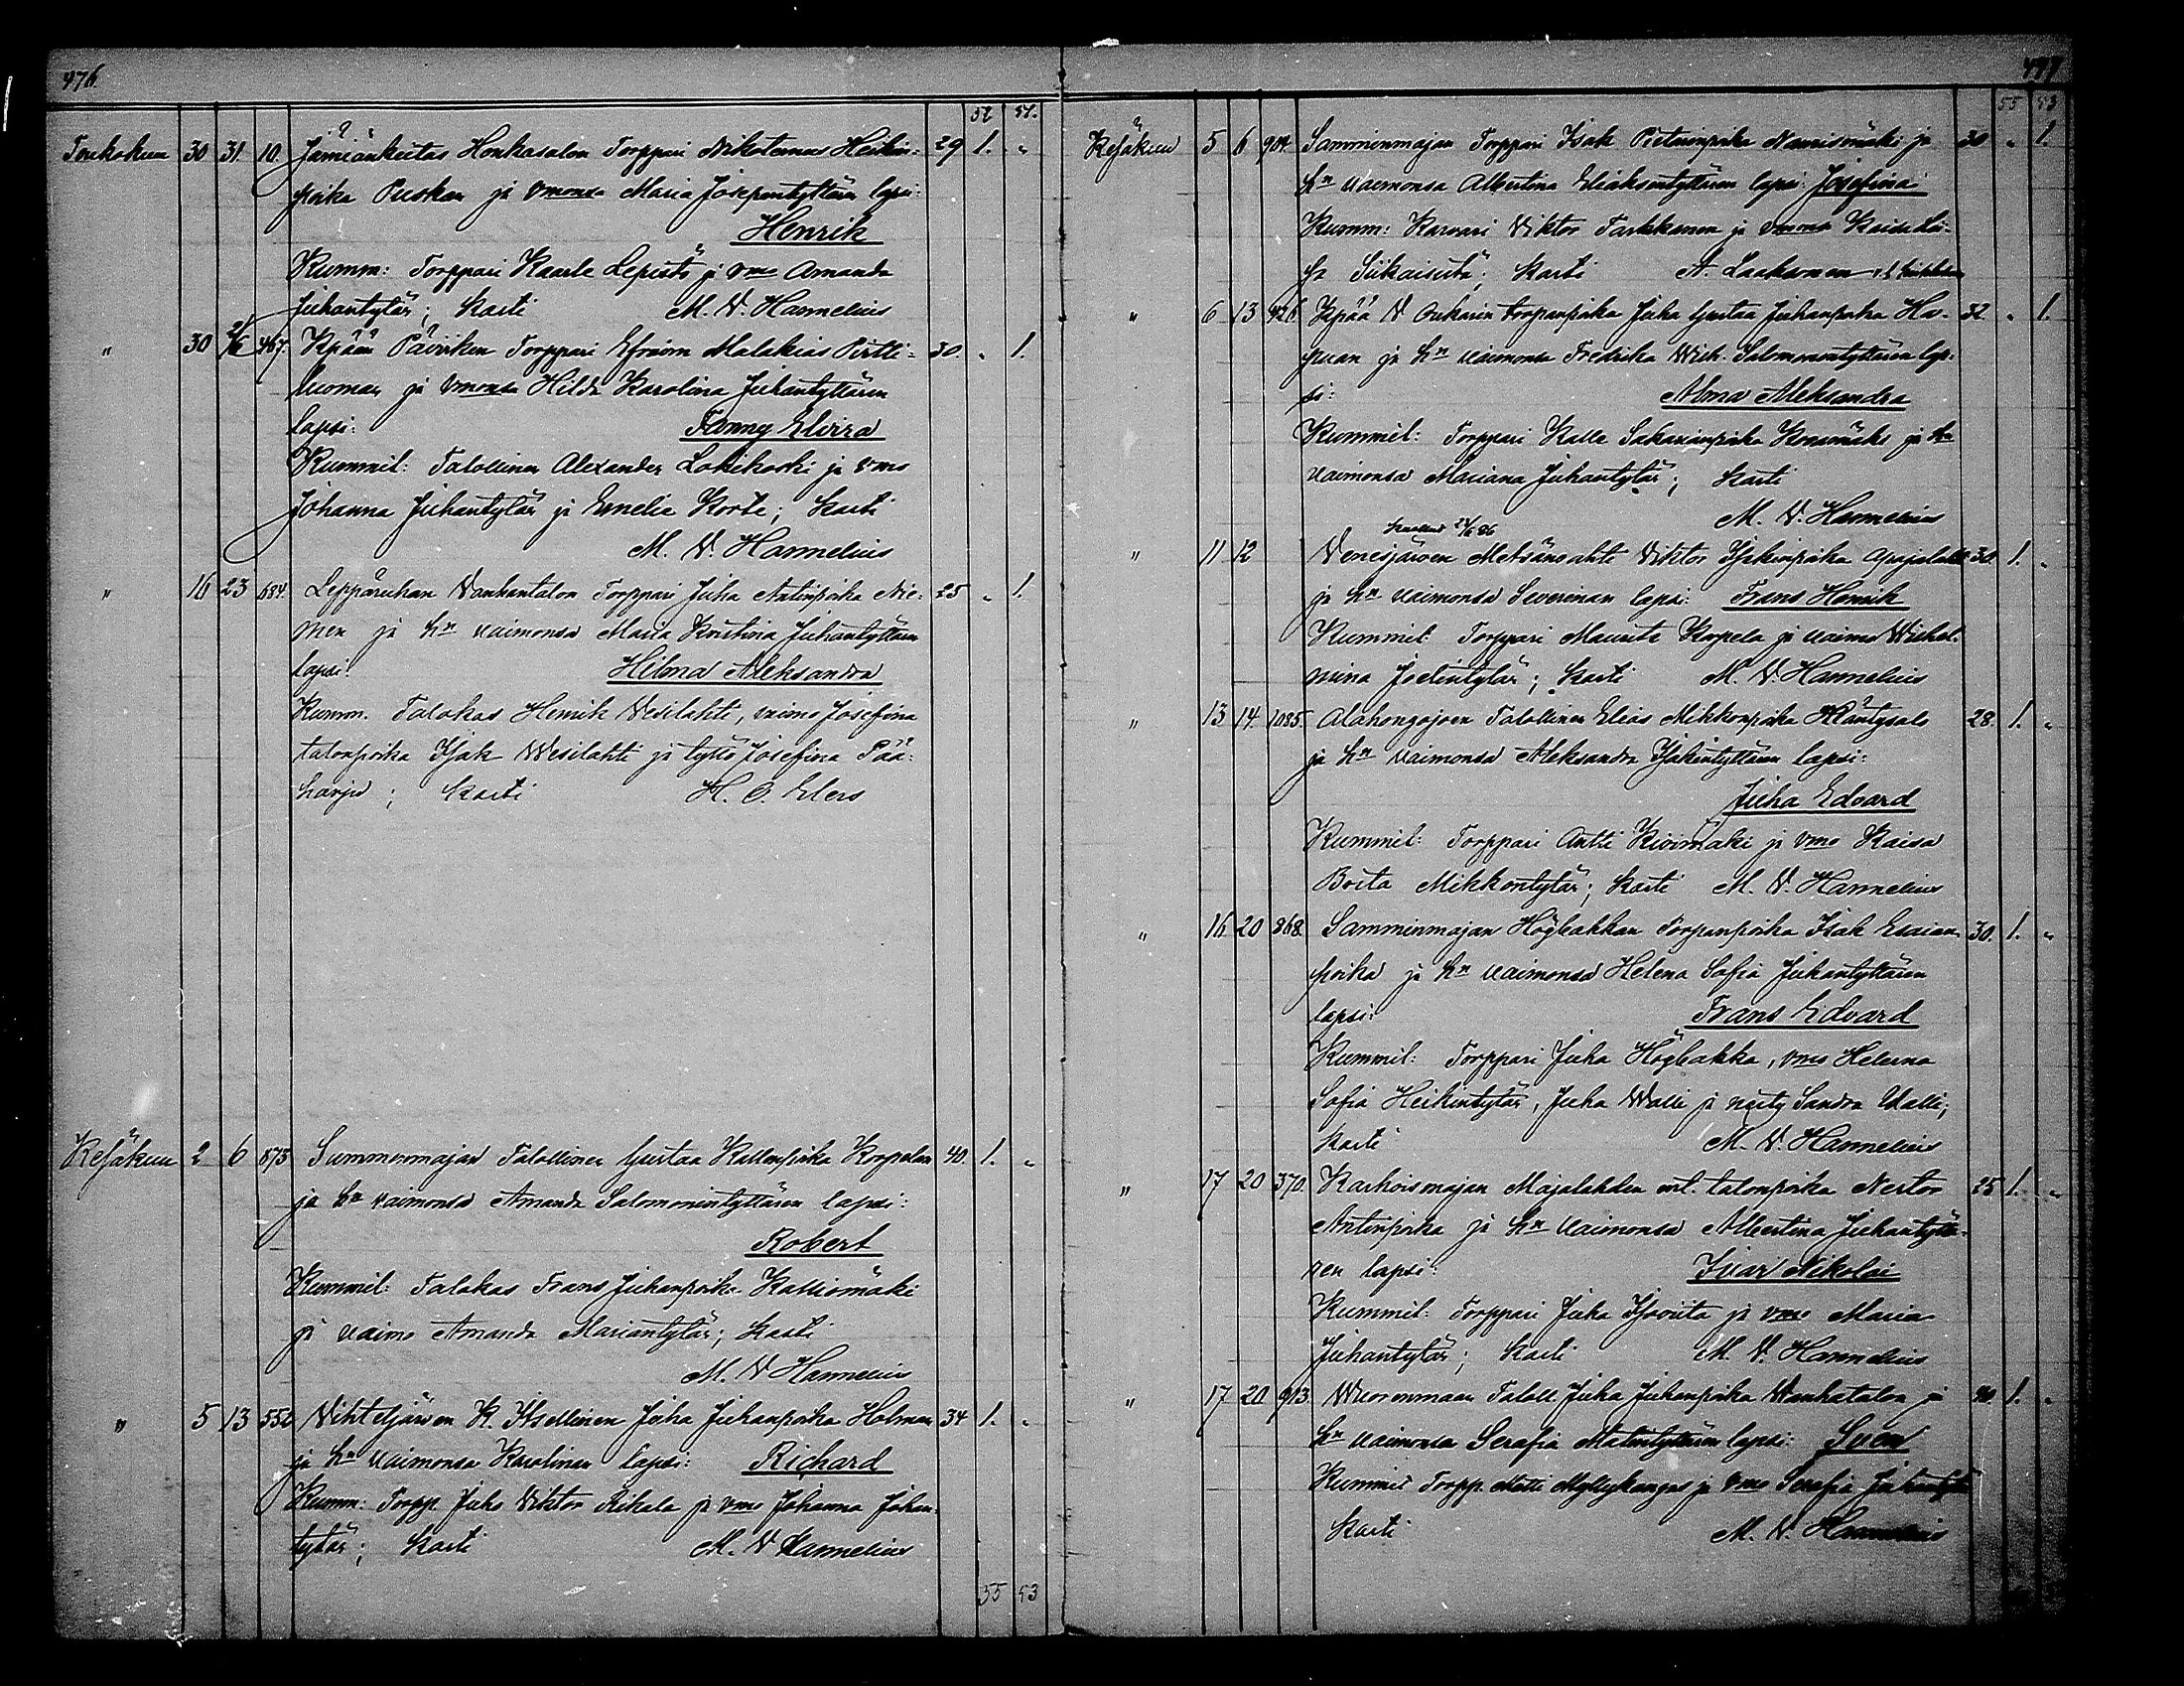 476.
52 51.
Toukokuu 30 31. 10. Jämiänkeitas Honkasalon Torppari Nikotemus Heikin- 29 1. "
poika Puskan ja vmonsa Maria Josepintyttären lapsi:
Henrik
Kumm: Torppari Kaarle Lepistö ja vmo Amanda
Juhantytär; Kasti M. V. Hannelius
" 30 2/6 467. Kpään Torppari Efraim Malakias Pirtti- 30. " 1.
luoman ja vmonsa Hilda Karolina Juhantyttären
lapsi: Fanny Elvira
Kummit: Talollinen Alexander Lohikoski ja vmo
Johanna Juhantytär ja Emelia Korte; Kasti
M. V. Hannelius
" 16 23 684. Leppäruhan Vanhantalon Torppari Juha Antinpoika Nie- 25 " 1.
men ja hn vaimonsa Maria Kristina Juhantyttären
lapsi: Hilma Aleksandra
Kumm. Talokas Henrik Vesilahti, vaimo Josefina
talonpoika Isak Wesilahti ja tyttö Josefina Pää-
harju; Kasti H. O. Elers
Kesäkuu 2 6 873 Samminmajan Talollinen Gustaa Kallenpoika Korpelan 40. 1. "
ja hn vaimonsa Amanda Salomonintyttären lapsi:
Robert
Kummit: Talokas Frans Juhanpoika Kalliomäki
ja vaimo Amanda Mariantytär; Kasti
M. V. Hannelius
" 5 13 552 Vihteljärven K. Itsellinen Juha Juhanpoika Holman 34 1. "
ja hn vaimonsa Karolinan lapsi: Richard
Kumm: Torpp. Juho Viktor Rikala ja vmo Johanna Johan-
tytär; Kasti M. V. Hannelius
55 53
477
55 53
Kesäkuu 5 6 904 Samminmajan Torppari Isak Pietarinpoika Naurismäki ja 30 " 1.
hn vaimonsa Albertina Eliaksentyttären lapsi: Josefina
Kumm: Karvari Viktor Tarkkanen ja vmonsa Kaisa Lii-
sa Siikaisista; Kasti A. Laaksonen
" 6 13 426 Kpää V. torpanpoika Juha Gustaa Juhanpoika Ha- 32 " 1.
puan ja hn vaimonsa Fredrika Wilh. Salomonintyttären lap-
si: Alma Aleksandra
Kummit: Torppari Kalle Sakarianpoika ja hn
vaimonsa Mariana Juhantytär; Kasti
M. V. Hannelius
Kuollut 24/6 86
" 11 12 Venesjärven Metsänsahti Viktor Isakinpoika 30. 1. "
ja hn vaimonsa Severinan lapsi: Frans Henrik
Kummit Torppari Maurits Korpela ja vaimo Wilhel-
mina Joelintytär; Kasti M. V. Hannelius
" 13 14. 1085. Alahongojoen Talollinen Elias Mikkonpoika Mäntysalo 28. 1. "
ja hn vaimonsa Aleksandra Isakintyttären lapsi:
Juha Edvard
Kummit: Torppari Antti Kivimäki ja vmo Kaisa
Brita Mikkontytär; Kasti M. V. Hannelius
" 16 20 868. Samminmajan Högbakkan Torpanpoika Isak Esaian- 30. 1. "
poika ja hn vaimonsa Helena Sofia Juhantyttären
lapsi: Frans Edvard
Kummit: Torppari Juha Högbakka, vmo Helena
Sofia Heikintytär, Juha Walli ja neity Sandra Walli;
Kasti M. V. Hannelius
" 17 20 370. Karhoismajan Majalahden ent. talonpoika Nestor 25 1. "
Antinpoika ja hn vaimonsa Albertina Juhantyttä-
ren lapsi: Ivar Nikolai
Kummit: Torppari Juha Isoviita ja vmo Maria
Juhantytär; Kasti M. V. Hannelius
" 17 20 913 Wuorenmaan Taloll. Juha Juhanpoika Wanhatalon ja 40. 1. "
hn vaimonsa Serafia Matintyttären lapsi: Sven
Kummit Torpp. Matti Myllykangas ja vmo Serafia Juhantytär
Kasti M. V. Hannelius